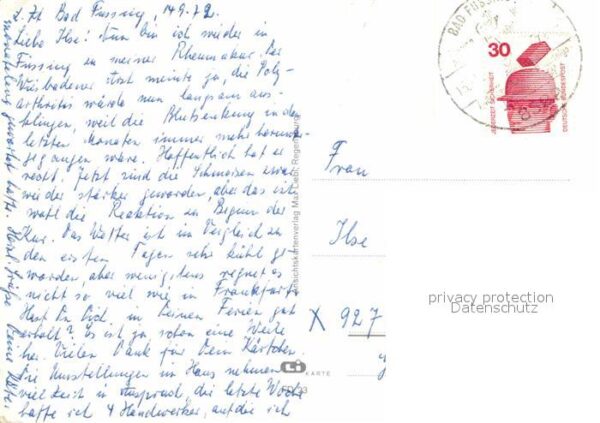 z. Zt Bad Füssing, 14.9.72.
Liebe Ilse! Nun bin ich wieder in
Füssing zu meiner Rheumakur. Der
Wiesbadener Arzt meinte ja, die Poly-
arthritis würde nun langsam aus-
klingen, weil die Blutsenkung in den
letzten Monaten immer mehr herunter-
gegangen wäre. Hoffentlich hat er
recht. Jetzt sind die Schmerzen zwar
wieder stärker geworden, aber das ist
wohl die Reaktion zu Beginn der
Kur. Das Wetter ist im Vergleich zu
den ersten Tagen sehr kühl ge-
worden, aber wenigstens regnet es
nicht so viel wie in Frankfurt.
Hast Du Dich in Deinen Ferien gut
erholt? Es ist ja schon eine Weile
her. Vielen Dank für Dein Kärtchen.
Die Umstellungen im Haus nehmen
viel Zeit in Anspruch, die letzte Woche
hatte ich 4 Handwerker, auf die ich
monatelang gewartet hatte. Herzl. Grüße Deine
Ansichtskartenverlag Max Liebl, Regensburg
KARTE
BAD FÜSSING
30
JEDERZEIT SICHERHEIT
DEUTSCHE BUNDESPOST
Frau
Ilse
X 927
privacy protection
Datenschutz